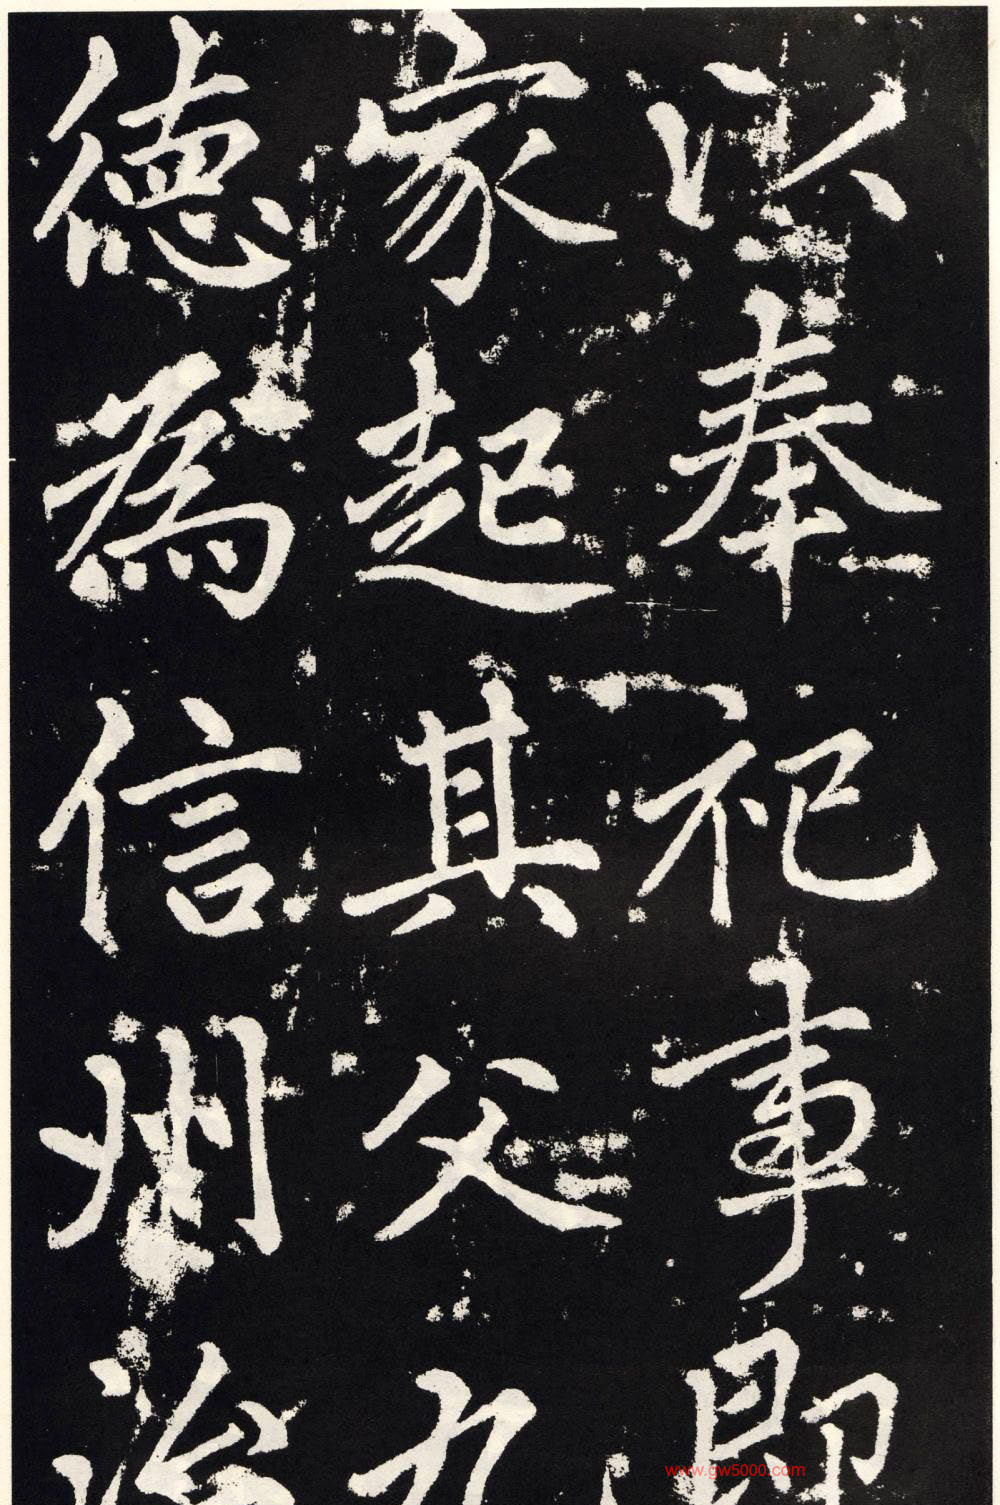 以奉祀事即
家起其父九
德為信州治
www.gw5000.com